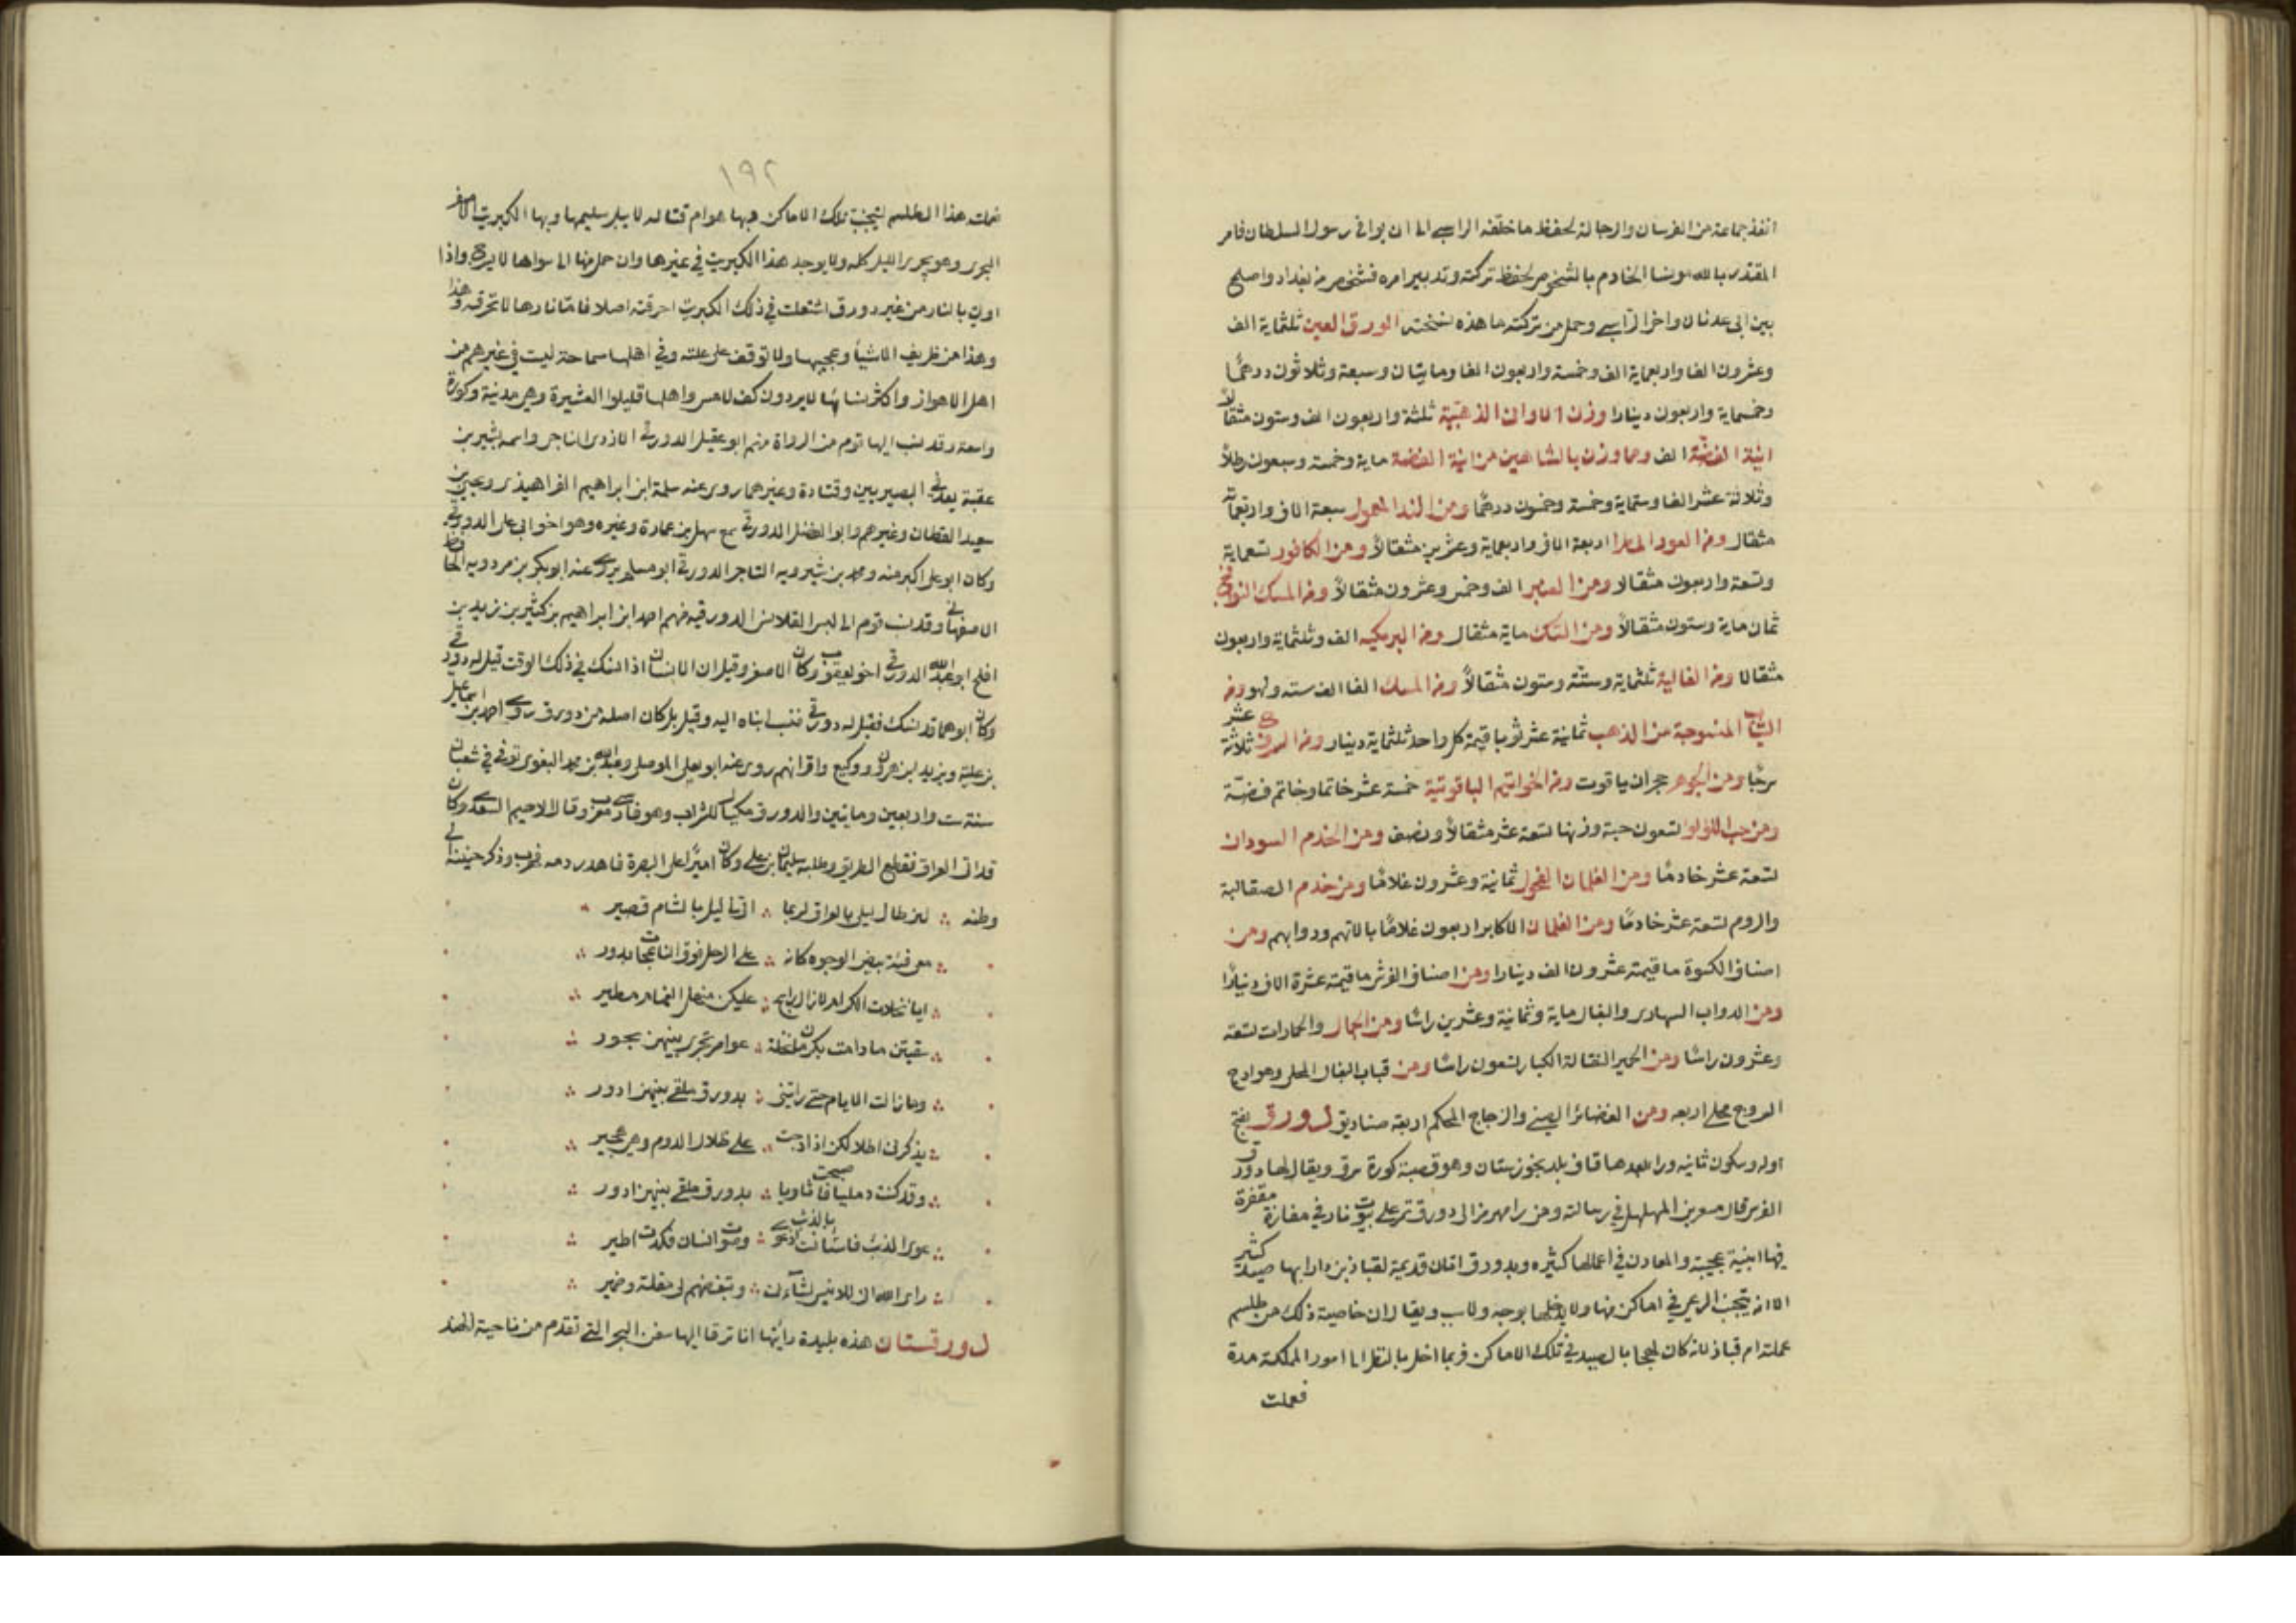 انفذ جماعة من الفرسان والرجالة لحفظ ما خلفه الراسبي الى ان يوافي رسول السلطان فامر
المقتدر بالله مونسا الخادم بالشخوص لحفظ تركته وتدبير امره فشخص من بغداد واصلح
بين ابي عدنان واخ الراسبي وحمل من تركته ما هذه نسخته الورق العين ثلثماية الف
وعشرون الفا واربعماية الف وخمسة واربعون الفا ومايتان وسبعة وثلاثون درهمًا
وخمسماية واربعون دينارا وزن الاواني الذهبية ثلثة واربعون الف وستون مثقالاً
انية الفضة الف وما وزن بالشاهين من انية الفضة ماية وخمسة وسبعون رطلاً
وثلاثة عشر الفا وستماية وخمسة وخمسون درهمًا ومن الند المعمول سبعة الاف واربعماية
مثقال ومن العود المطرا اربعة الاف واربعماية وعشرين مثقالاً ومن الكافور تسعماية
وتسعة واربعون مثقالا ومن العنبر الف وخمس وعشرون مثقالاً ومن المسك النوافج
ثمان ماية وستون مثقالاً ومن السك ماية مثقال ومن البرمكيه الف وثلثماية واربعون
مثقالا ومن الغالية ثلثماية وستة وستون مثقالاً ومن المسك الفا الف سته ومن
الثياب المنسوجة من الذهب ثمانية عشر ثوبا قيمة كل واحد ثلثماية دينار ومن السروج ثلاثة عشر
سرجًا ومن الجوهر حجران ياقوت ومن الخواتيم الياقوتية خمسة عشر خاتما وخاتم فضة
ومن حب اللؤلؤ تسعون حبة وزنها تسعة عشر مثقالاً ونصف ومن الخدم السودان
تسعة عشر خادمًا ومن الغلمان الفحول ثمانية وعشرون غلامًا ومن خدم الصقالبة
والروم تسعة عشر خادمًا ومن الغلمان الاكابر اربعون غلامًا بالاتهم ودوابهم ومن
اصناف الكسوة ما قيمته عشرون الف دينارا ومن اصناف الفرش ما قيمته عشرة الاف دينارًا
ومن الدواب المهارى والبغال ماية وثمانية وعشرين راسًا ومن الجمال والحمارات تسعة
وعشرون راسًا ومن الحمير النقالة الكبار تسعون راسًا ومن قباب البغال المحلى وهوادج
السروج محلى اربعه ومن الغضائر الصيني والزجاج المحكم اربعة صناديق دورق بفتح
اوله وسكون ثانيه ورا بعدها قاف بلد بخوزستان وهو قصبة كورة سرق ويقال لها دورق
الفرس قال مسعر بن المهلهل في رسالته ومن رامهرمز الى دورق تمر على بيوت نار في مفازة مقفرة
فيها ابنية عجيبة والمعادن في اعمالها كثيره وبدورق اثار قديمة لقباذ بن دارا بها صيد كثير
الا انه يتجنب الرعي في اماكن منها ولا يدخلها بوجه ولا سبب ويقال ان خاصية ذلك من طلسم
عملته ام قباذ لانه كان لهجا بالصيد في تلك الاماكن فربما اخل بالنظر الى امور المملكة مدة
فعملت
١٩٢
فعملت هذا الطلسم ليتجنب تلك الاماكن وبها هوام قتاله لا يبرا سليمها وبها الكبريت الاصفر
البحري وهو يجري الليل كله ولا يوجد هذا الكبريت في غيرها وان حمل منها الى سواها لا يسرج واذا
اوتي بالنار من غير دورق اشتعلت في ذلك الكبريت احرقته اصلا فاما نارها لا تحرقه وهذا
وهذا من ظريف الاشيأ وعجيبها ولا توقف على علته وفي اهلها سماحة ليست في غيرهم من
اهل الاهواز واكثر نسائها لا يردون كف لامس واهلها قليلوا العشيرة وهي مدينة وكورة
واسعة وقد نسب اليها قوم من الرواة منهم ابو عقيل الدورقي الازدي الناجي واسمه بشير بن
عقبة يعد في البصيريين وقتادة وغيرهما روى عنه سلمة ابن ابراهيم الفراهيذي ويحيى بن
سعيد القطان وغيرهم وابو الفضل الدورقي سمع سهل بن عمارة وغيره وهو اخو ابي علي الدورقي
وكان ابو علي اكبر منه ومحمد بن شيرويه التاجر الدورقي ابو مسلم يروى عنه ابو بكر بن مردويه الحافظ
الاصفهاني وقد نسب قوم الى لبس القلانس الدورقيه منهم احمد ابن ابراهيم بن كثير بن زيد بن
افلح ابو عبد الله الدورقي اخو يعقوب وكان الاصغر وقيل ان الانسان اذا نسك في ذلك الوقت قيل له دورقي
وكان ابوهما قد نسك فقيل له دورقي فنسب ابناه اليه وقيل بل كان اصله من دورق روى احمد بن اسماعيل
بن علية ويزيد بن هرون ووكيع واقرانهم روى عنه ابو يعلى الموصلي وعبد الله بن محمد البغوي توفي في شعبان
سنة ست واربعين ومايتين والدورق مكيال للشراب وهو فارسي معرب وقال الاحيمر السعدي وكان
قد اتى العراق فقطع الطريق وطلبه سليمان بن علي وكان اميرًا على البصرة فاهدر دمه فهرب وذكر حنينه الى
وطنه ∴ لئن طال ليلي بالعراق لربما ∴ اتى ليل بالشام قصير
∴ معي فتية بيض الوجوه كانهم ∴ على الرحل فوق الناعجات بدور ∴
∴ ايا نخلات الكرم لا زال رايح ∴ عليكن منهل الغمام مطير ∴
∴ سقيتن ما دامت بكرمان نخلة ∴ عوامر تجري بينهن بحور ∴
∴ وما زالت الايام حتى رايتني ∴ بدورق ملقى بينهن ادور ∴
∴ يذكرني اطلالكن اذا دجت ∴ على ظلال الدوم وهي هجير ∴
∴ وقد كنت رمليا فاصبحت ثاويا ∴ بدورق ملقى بينهن ادور ∴
∴ عوى الذئب فاستانست بالذئب اذ عوى ∴ وصوت انسان فكدت اطير ∴
∴ راى الله اني للانيس لشآنئ ∴ وتبغضهم لي مقلة وضمير ∴
دورقستان هذه بليدة رائتها انا ترقا اليها سفن البحر التي تقدم من ناحية الهند